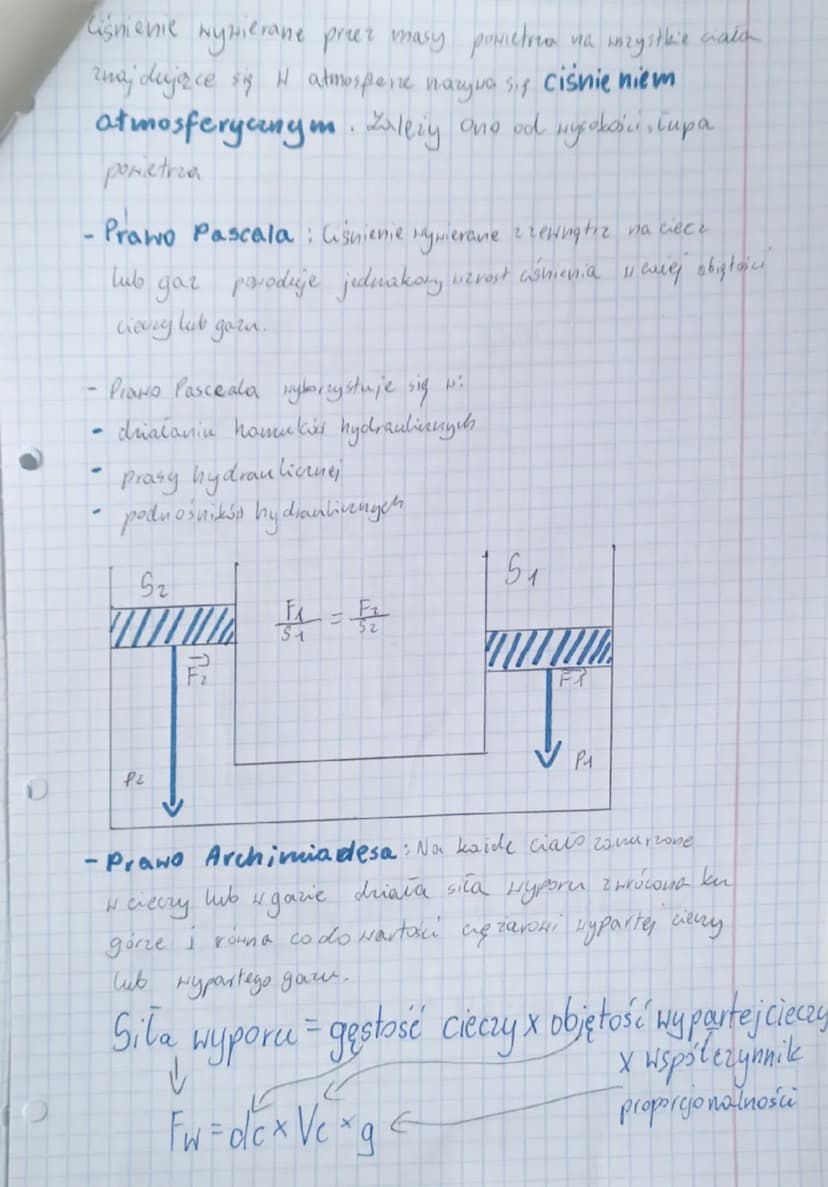 Ciśnienie wywierane przez masy powietrza na wszystkie ciała
znajdujące się w atmosferze nazywa się ciśnieniem
atmosferycznym. Zależy ono od wysokości słupa
powietrza
- Prawo Pascala: Ciśnienie wywierane z zewnątrz na ciecz
lub gaz powoduje jednakowy wzrost ciśnienia w całej objętości
cieczy lub gazu.
- Prawo Pasceala wykorzystuje się w:
- działaniu hamulców hydraulicznych
- prasy hydraulicznej
- podnośników hydraulicznych
S2
S1
F1/S1 = F2/S2
F2
F1
P2
P1
- Prawo Archimiadesa: Na każde ciało zanurzone
w cieczy lub w gazie działa siła wyporu zwrócona ku
górze i równa co do wartości ciężarowi wypartej cieczy
lub wypartego gazu.
Siła wyporu = gęstość cieczy x objętość wypartej cieczy
x współczynnik
proporcjonalności
Fw = dc x Vc x g